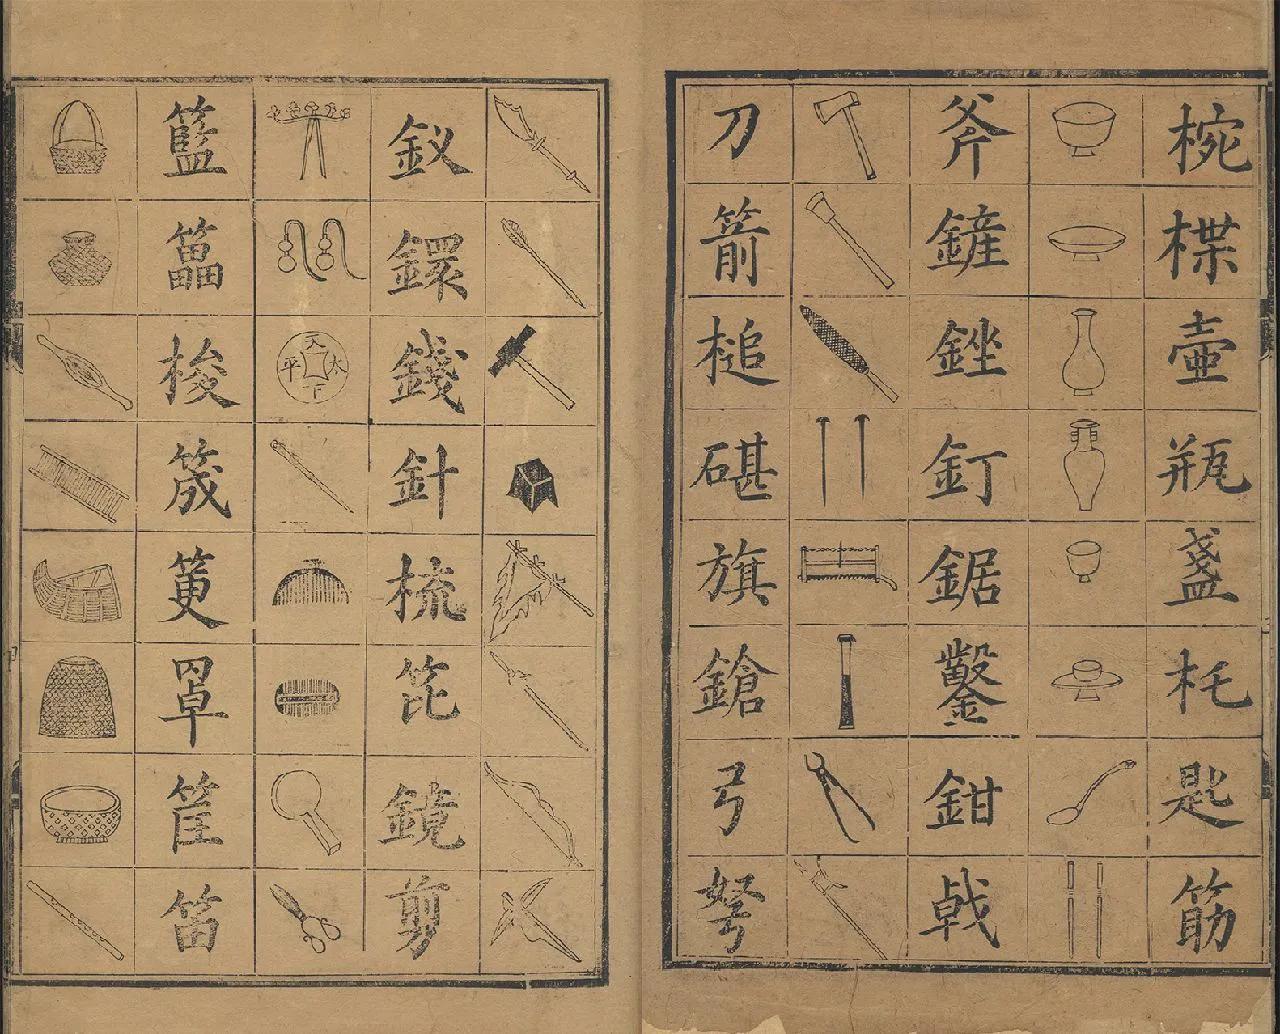 椀楪壺瓶盞杔匙筯
斧鏟銼釘鋸鑿鉗戟
刀箭槌碪旗鎗弓弩
釵鐶錢針梳笓鏡剪
天下太平
籃梭筬筻罩筐笛